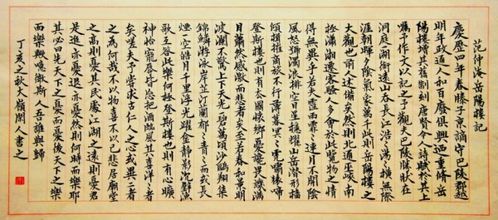 范仲淹岳陽樓記
慶曆四年春滕子京謫守巴陵郡越
明年政通人和百廢俱興迺重修岳
陽樓增其舊制刻唐賢今人詩賦於其上
囑予作文以記之予觀夫巴陵勝狀在
洞庭一湖銜遠山吞長江浩浩湯湯橫無際
涯朝暉夕陰氣象萬千此則岳陽樓之
大觀也前人之述備矣然則北通巫峽南
極瀟湘遷客騷人多會於此覽物之情
得無異乎若夫霪雨霏霏連月不開陰
風怒號濁浪排空日星隱耀山岳潛形檣
傾楫摧商旅不行薄暮冥冥虎嘯猿啼
登斯樓也則有去國懷鄉憂讒畏譏滿
目蕭然感極而悲者矣至若春和景明
波瀾不驚上下天光一碧萬頃沙鷗翔集
錦鱗游泳岸芷汀蘭郁郁青青而或長
煙一空皓月千里浮光躍金靜影沉璧漁
歌互答此樂何極登斯樓也則有心曠
神怡寵辱皆忘把酒臨風其喜洋洋者
矣嗟夫予嘗求古仁人之心或異二者
之為何哉不以物喜不以己悲居廟堂
之高則憂其民處江湖之遠則憂其君
是進亦憂退亦憂然則何時而樂耶
其必曰先天下之憂而憂後天下之樂
而樂歟噫微斯人吾誰與歸
丁亥之秋大嶺閑人書之